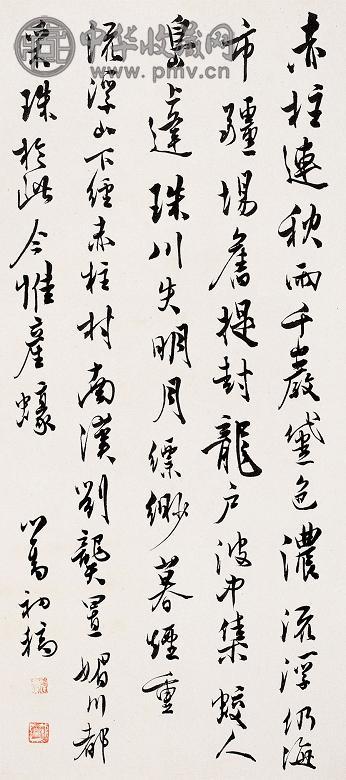 中华收藏网
www.pmv.cn
赤柱連秋雨千巖黛色濃流浮仍海
市疆場舊提封龍戶波中集蛟人
島上逢珠川失明月縹緲暮煙重
流浮山下經赤柱村南漢劉龑置媚川都
采珠於此今惟產蠔
心畬初稿